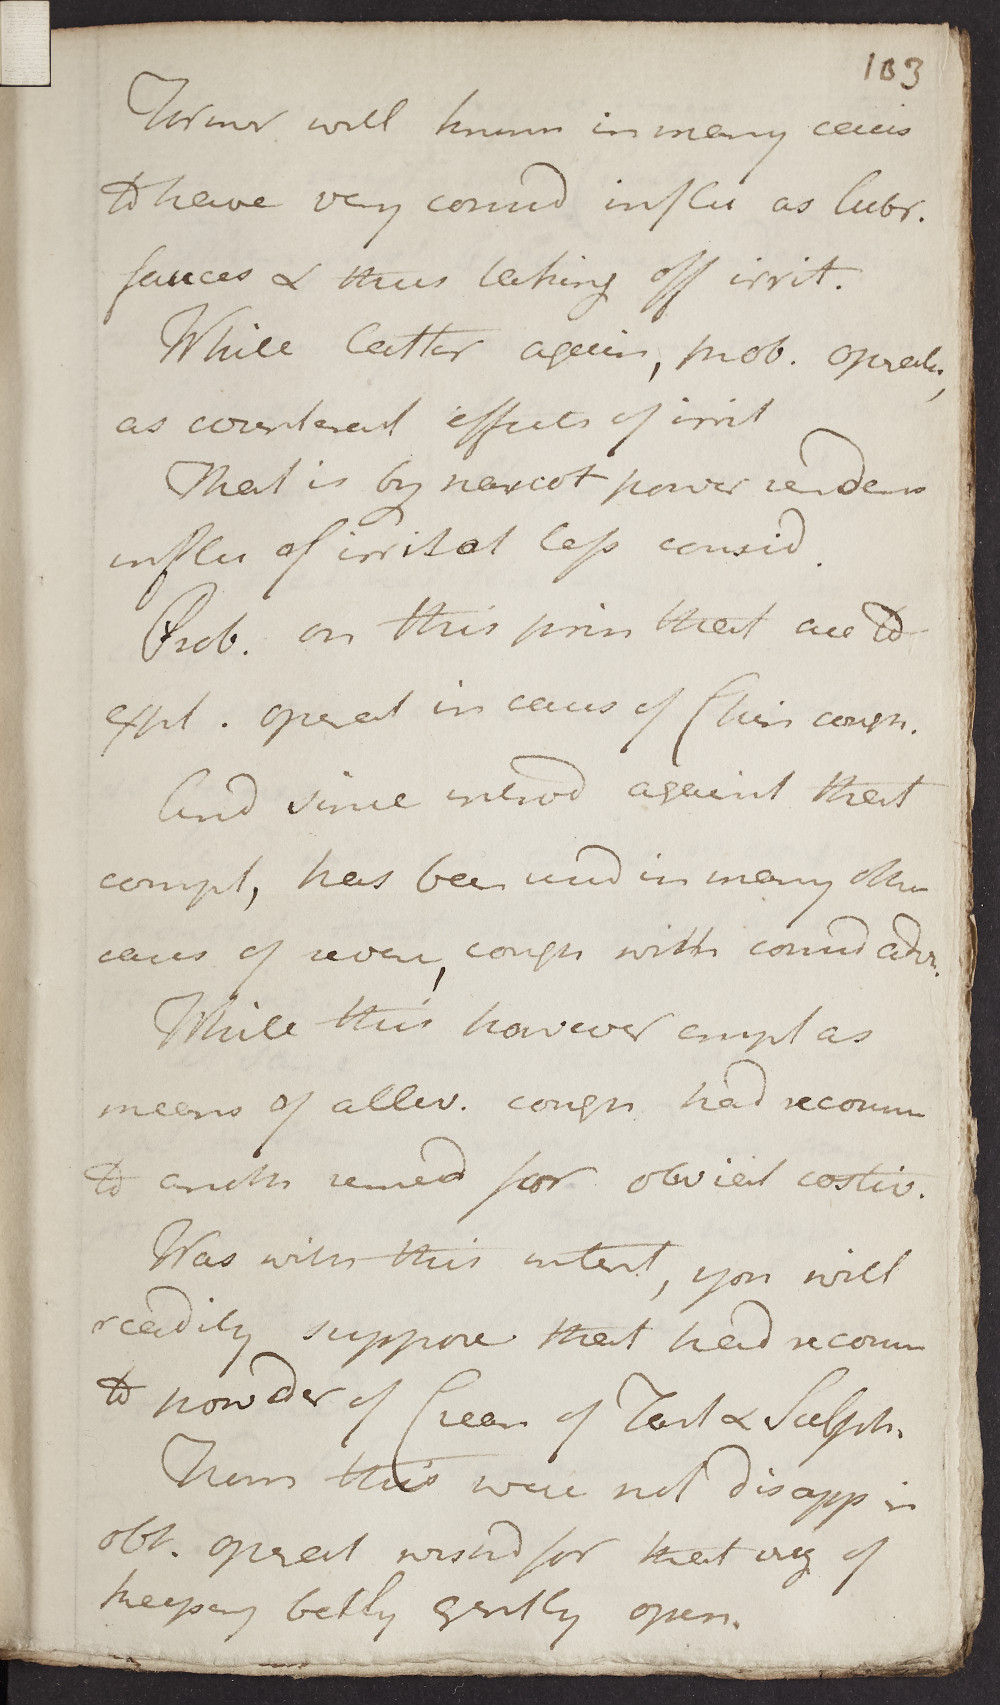 103
Former well known in many cases
to have very consid influ as lubr.
fauces & thus taking off irrit.
While latter again, prob. operates,
as counteract effects of irrit
That is by narcot power renders
influ of irritat less consid.
Prob. on this prin that are to
expl. operat in cases of Chin cough.
And since introd against that
compt, has been used in many other
cases of severe, cough with consid adv.
While this however empl as
means of allev. cough had recourse
to anoth remed for obviat costiv.
Was with this intent, you will
readily suppose that had recourse
to powder of Cream of Tart & Sulph.
From this were not disapp in
obt. operat wished for that viz of
keeping belly gently open.